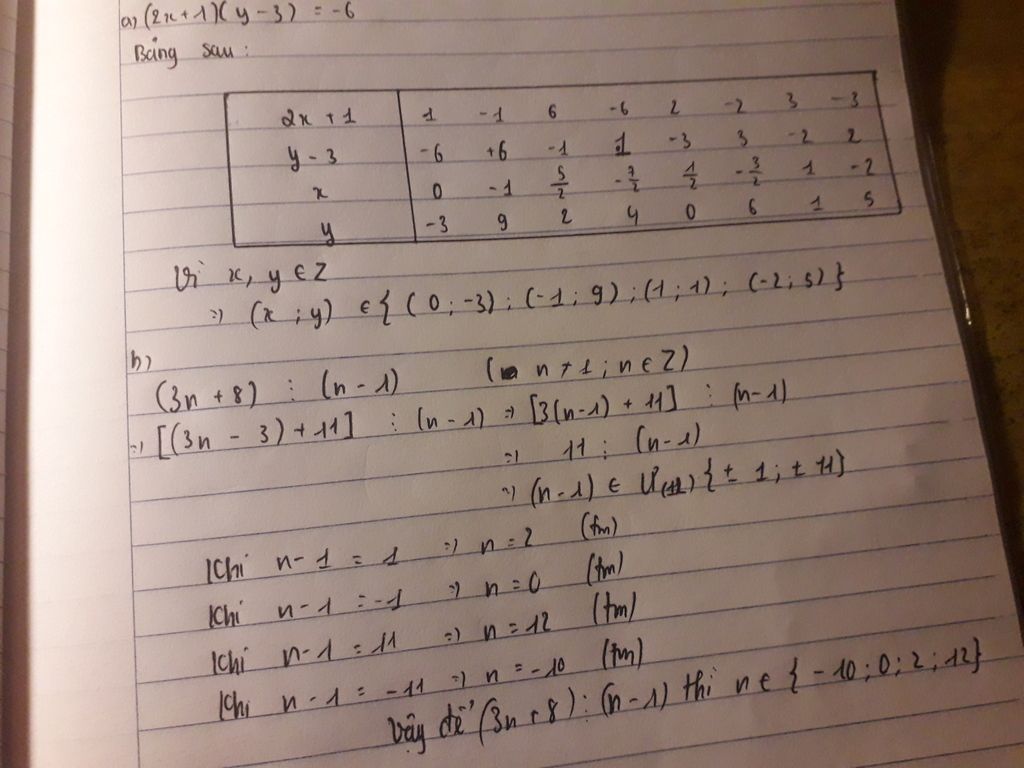 a) (2x+1)(y-3) = -6
Bảng sau:
2x+1 1 -1 6 -6 2 -2 3 -3
y-3 -6 +6 -1 1 -3 3 -2 2
x 0 -1 5/2 -7/2 1/2 -3/2 1 -2
y -3 9 2 4 0 6 1 5
Vì x, y ∈ Z
=> (x ; y) ∈ { (0 ; -3) ; (-1 ; 9) ; (1 ; 1) ; (-2 ; 5) }
b)
(3n + 8) ⋮ (n - 1) (n ≠ 1 ; n ∈ Z)
=> [(3n - 3) + 11] ⋮ (n - 1) => [3(n-1) + 11] ⋮ (n-1)
=> 11 ⋮ (n-1)
=> (n-1) ∈ Ư(11) {± 1 ; ± 11}
Khi n - 1 = 1 => n = 2 (tm)
Khi n - 1 = -1 => n = 0 (tm)
Khi n - 1 = 11 => n = 12 (tm)
Khi n - 1 = -11 => n = -10 (tm)
Vậy để (3n + 8) ⋮ (n-1) thì n ∈ { -10 ; 0 ; 2 ; 12}